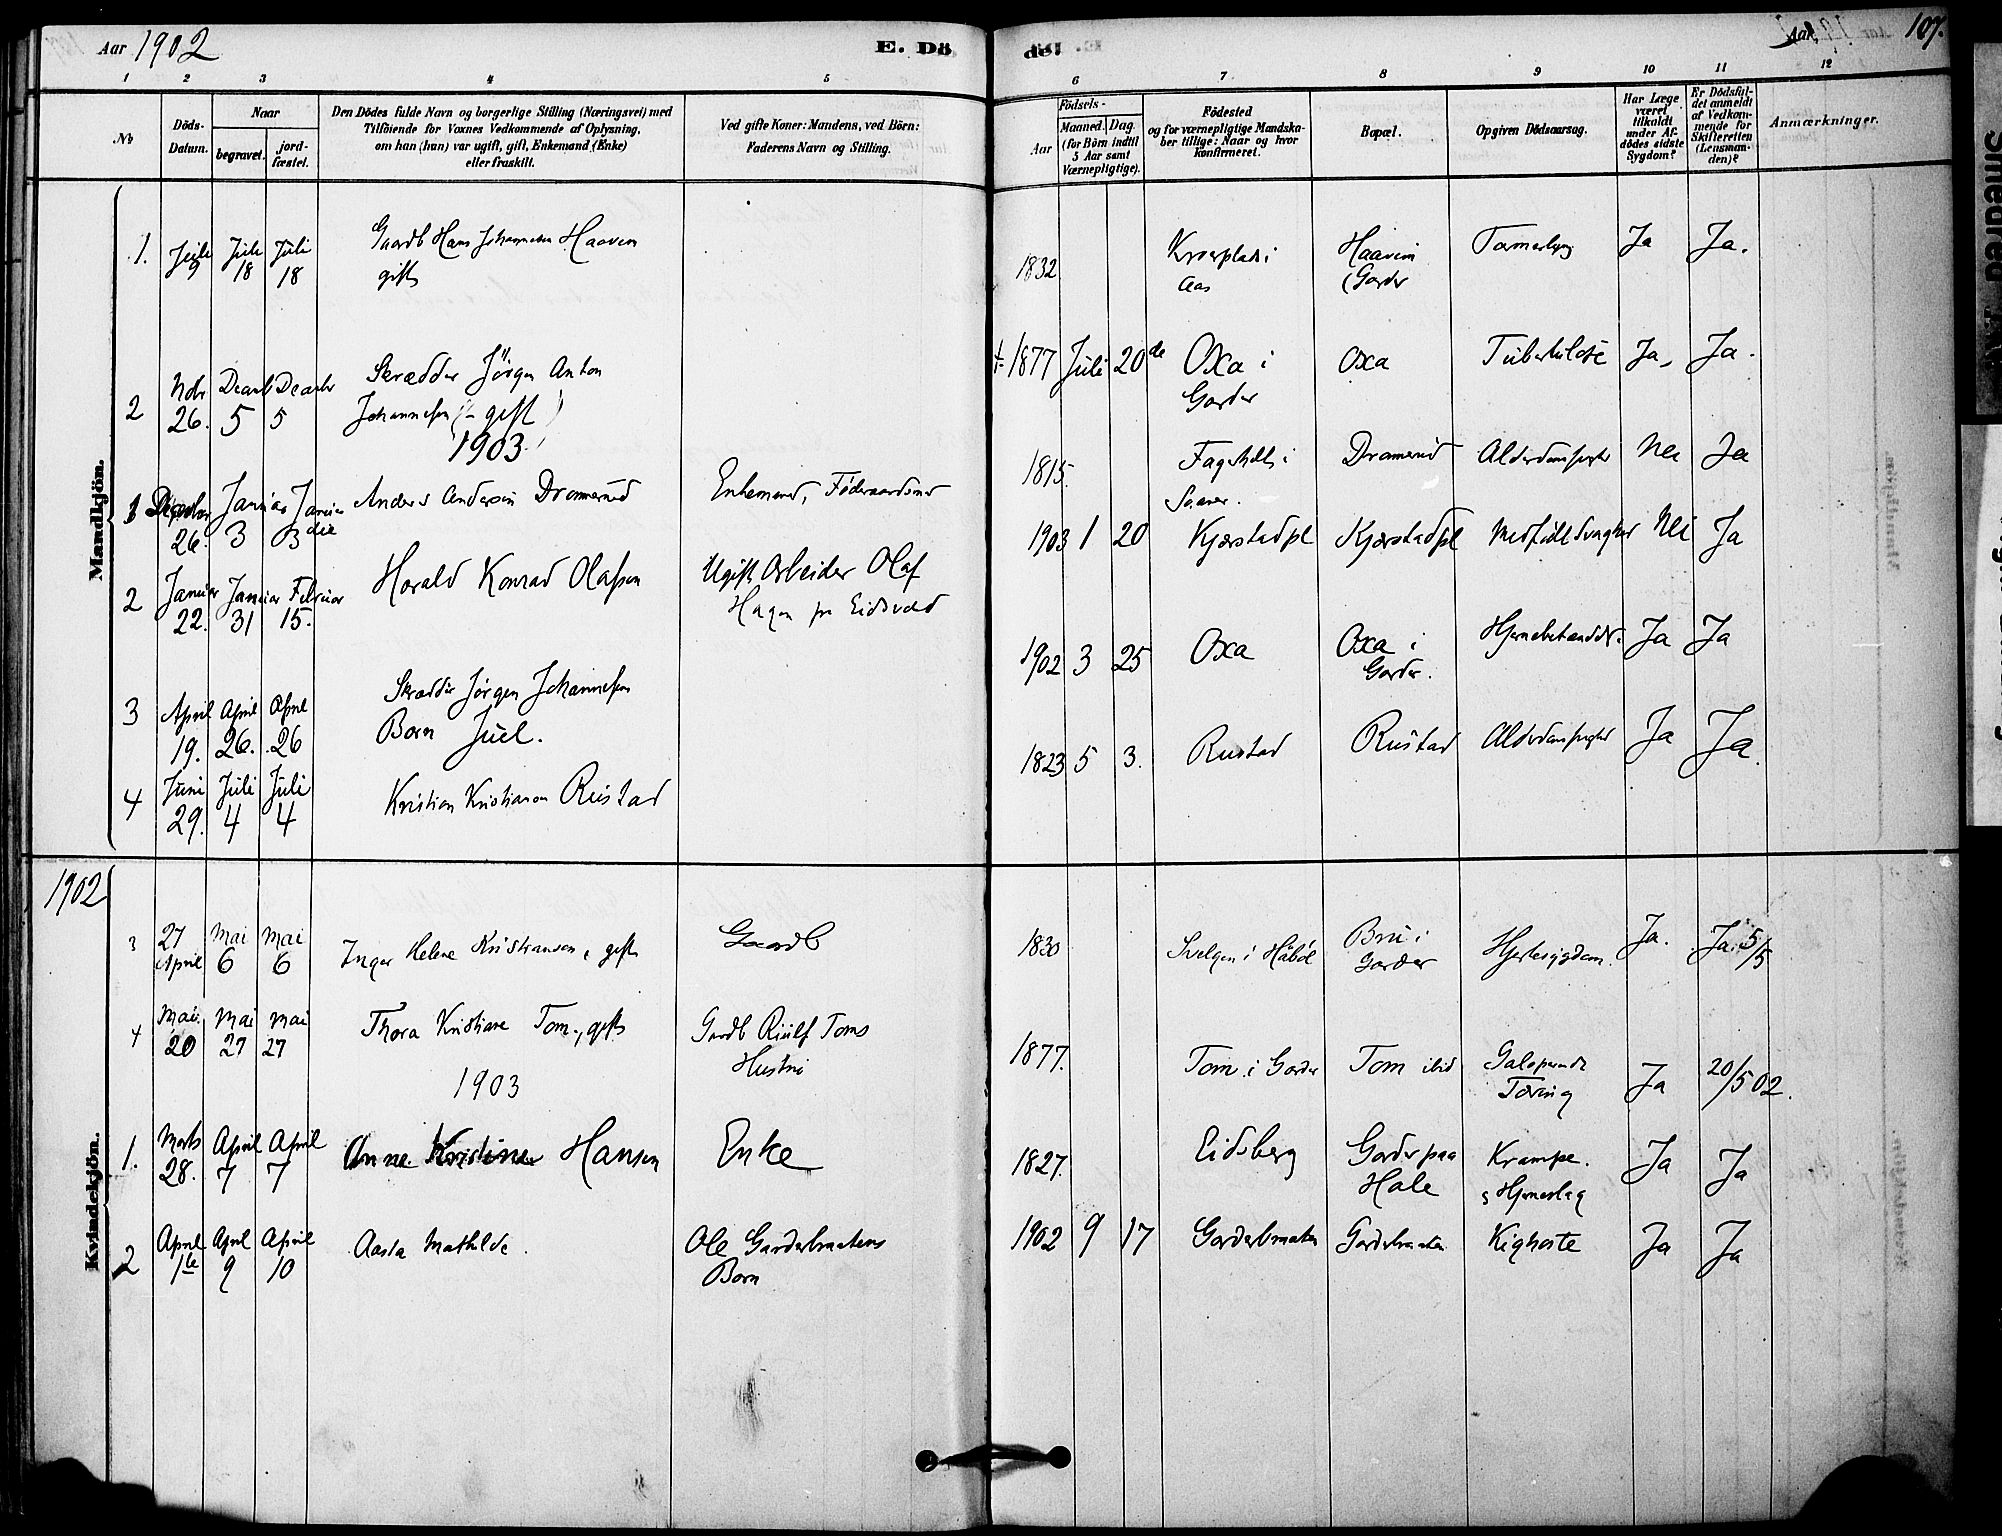 Aar 1902
E. Dö
Aar
107.
1 2 3 4 5 6 7 8 9 10 11 12
№
Döds-
Datum.
Naar
begravet.
jord-
fæstet.
Den Dödes fulde Navn og borgerlige Stilling (Næringsvei) med
Tilföiende for Voxnes Vedkommende af Oplysning,
om han (hun) var ugift, gift, Enkemand (Enke)
eller fraskilt.
Ved gifte Koner: Mandens, ved Börn:
Faderens Navn og Stilling.
Födsels-
Aar
Maaned. Dag
(for Börn indtil
5 Aar samt
Værnepligtige).
Födested
og for værnepligtige Mandska-
ber tillige: Naar og hvor
konfirmeret.
Bopæl.
Opgiven Dödsaarsag.
Har Læge
været
tilkaldt
under Af-
dödes sidste
Sygdom?
Er Dödsfal-
det anmeldt
af Vedkom-
mende for
Skifteretten
(Lensman-
den)?
Anmærkninger.
Mandkjön.
1. Juli 9 Juli 18 Juli 18 Gaardb Hans Johannesen Haaven
gift
1832 i
Aas
Haaven
i Garder
Ja Ja.
2 Nobr 26. Decmbr 5 Decmbr 5 Skrædder Jörgen Anton
Johannesen (- gift)
1877 Juli 20de Oxa i
Garder
Oxa Tuberkulose Ja Ja.
1903
1 26. Januar 3 Januar 3die Anders Andersen Dramerud Enkemand, Föderaadsmd
1815.
Saaner.
Dramerud Alderdomssvaghed Nei Ja
2 Januar 22. Januar 31 Februar 15. Harald Konrad Olafsen Ugift Arbeider Olaf
Hagen pr Eidsvold
1903 1 20 Kjærstadpl Kjærstadpl Medfødt Svaghed Nei Ja
3 April 19. April 26. April 26 Skrædder Jörgen Johannesens
Barn Juel.
1902 3 25 Oxa Oxa i
Garder.
Hjernebetændels. Ja Ja
4 Juni 29. Juli 4 Juli 4 Kristian Kristiansen Rustad
1823 5 3. Rustad Rustad Alderdomssvaghed Ja Ja.
Kvindekjön.
1902
3 27 April Mai 6 Mai 6 Inger Helene Kristiansen, gift Gaardb
1830 Svelgen i Håböl Bru i
Garder
Hjertesygdom. Ja. Ja. 5/5
4 Mai. 20 Mai 27 Mai 27 Thora Kristiane Tom., gift Gardb Riulf Toms
Hustru
1877. Tom. i Garder Tom ibid Galoperende
Tæring
Ja 20/5 02.
1903
1. Marts 28. April 7 April 7 Anne Kristine Hansen Enke
1827. Eidsberg Garder paa
Hale
Krampe.
& Hjerneslag
Ja Ja
2 April 1ste April 9 April 10 Aasta Mathilde. Ole Garderbraatens
Barn
1902 9 17 Garderbraaten Garderbraaten Kighoste Ja Ja